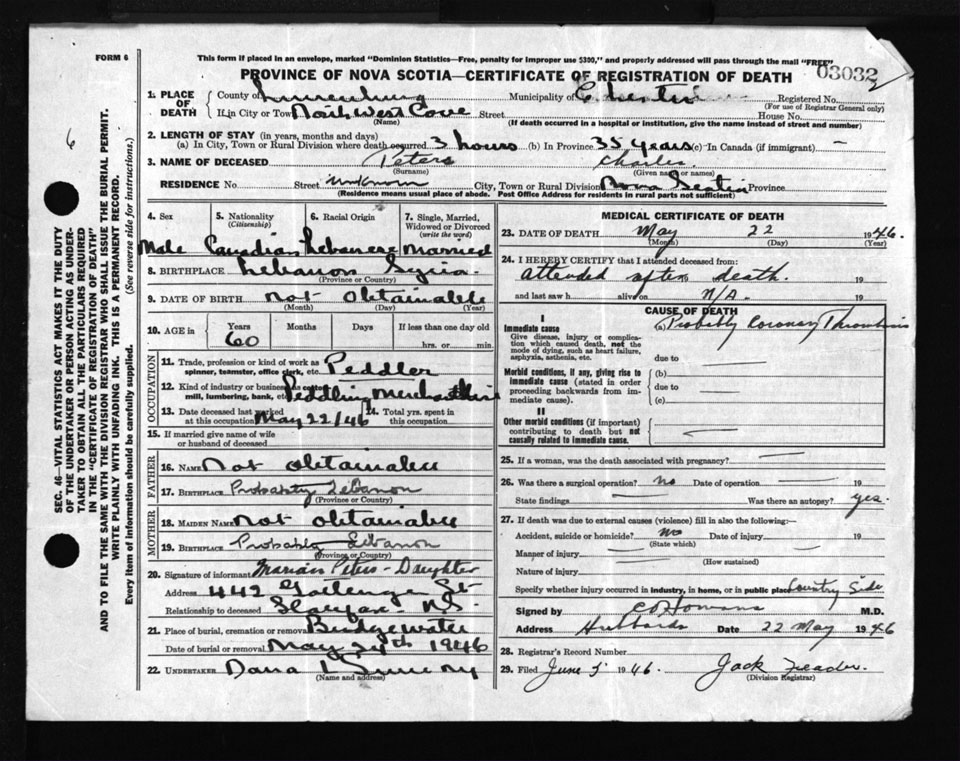 FORM 6
This form if placed in an envelope, marked "Dominion Statistics—Free, penalty for improper use $300," and properly addressed will pass through the mail "FREE"
PROVINCE OF NOVA SCOTIA—CERTIFICATE OF REGISTRATION OF DEATH
03032
6
SEC. 46—VITAL STATISTICS ACT MAKES IT THE DUTY
OF THE UNDERTAKER OR PERSON ACTING AS UNDER-
TAKER TO OBTAIN ALL THE PARTICULARS REQUIRED
IN THE "CERTIFICATE OF REGISTRATION OF DEATH"
AND TO FILE THE SAME WITH THE DIVISION REGISTRAR WHO SHALL ISSUE THE BURIAL PERMIT.
WRITE PLAINLY WITH UNFADING INK. THIS IS A PERMANENT RECORD.
Every item of information should be carefully supplied. (See reverse side for instructions.)
1. PLACE OF DEATH
County of Lunenburg Municipality of Chester Registered No.
(For use of Registrar General only)
If in City or Town North West Cove Street House No.
(Name) (If death occurred in a hospital or institution, give the name instead of street and number)
2. LENGTH OF STAY (in years, months and days)
(a) In City, Town or Rural Division where death occurred 3 hours (b) In Province 35 years (c) In Canada (if immigrant) —
3. NAME OF DECEASED Peters Charles
(Surname) (Given name or names)
RESIDENCE No Street unknown City, Town or Rural Division Nova Scotia Province
(Residence means usual place of abode. Post Office Address for residents in rural parts not sufficient)
4. Sex 5. Nationality (Citizenship) 6. Racial Origin 7. Single, Married, Widowed or Divorced (write the word)
Male Canadian Lebanese Married
8. BIRTHPLACE Lebanon Syria.
(Province or Country)
9. DATE OF BIRTH not obtainable
(Month) (Day) (Year)
10. AGE in Years Months Days If less than one day old
60 hrs. or min.
OCCUPATION
11. Trade, profession or kind of work as Peddler
spinner, teamster, office clerk, etc.
12. Kind of industry or business, as cotton
mill, lumbering, bank, etc. Peddling
13. Date deceased last worked at this occupation May 22/46 14. Total yrs. spent in this occupation
15. If married give name of wife
or husband of deceased
FATHER
16. NAME Not obtainable
17. BIRTHPLACE Probably Lebanon
(Province or Country)
MOTHER
18. MAIDEN NAME not obtainable
19. BIRTHPLACE Probably Lebanon
(Province or Country)
20. Signature of informant Marian Peters - Daughter
Address 442 St
Relationship to deceased N.S.
21. Place of burial, cremation or removal Bridgewater
Date of burial or removal May 24th 1946
22. UNDERTAKER Dana L
(Name and address)
MEDICAL CERTIFICATE OF DEATH
23. DATE OF DEATH May 22 1946.
(Month) (Day) (Year)
24. I HEREBY CERTIFY that I attended deceased from:
attended after death. 19
and last saw h alive on N/A. 19
CAUSE OF DEATH
I
Immediate cause (a) Probably Coronary Thrombosis
Give disease, injury or complica-
tion which caused death, not the
mode of dying, such as heart failure,
asphyxia, asthenia, etc. due to
Morbid conditions, if any, giving rise to (b)
immediate cause (stated in order due to
proceeding backwards from im-
mediate cause). (c)
II
Other morbid conditions (if important)
contributing to death but not
causally related to immediate cause.
25. If a woman, was the death associated with pregnancy?
26. Was there a surgical operation? no Date of operation 19
State findings Was there an autopsy? yes.
27. If death was due to external causes (violence) fill in also the following:—
Accident, suicide or homicide? no Date of injury 19
(State which)
Manner of injury
(How sustained)
Nature of injury
Specify whether injury occurred in industry, in home, or in public place Country Side
Signed by M.D.
Address Hubbards Date 22 May 1946
28. Registrar's Record Number
29. Filed June 5 1946. Jack
(Division Registrar)